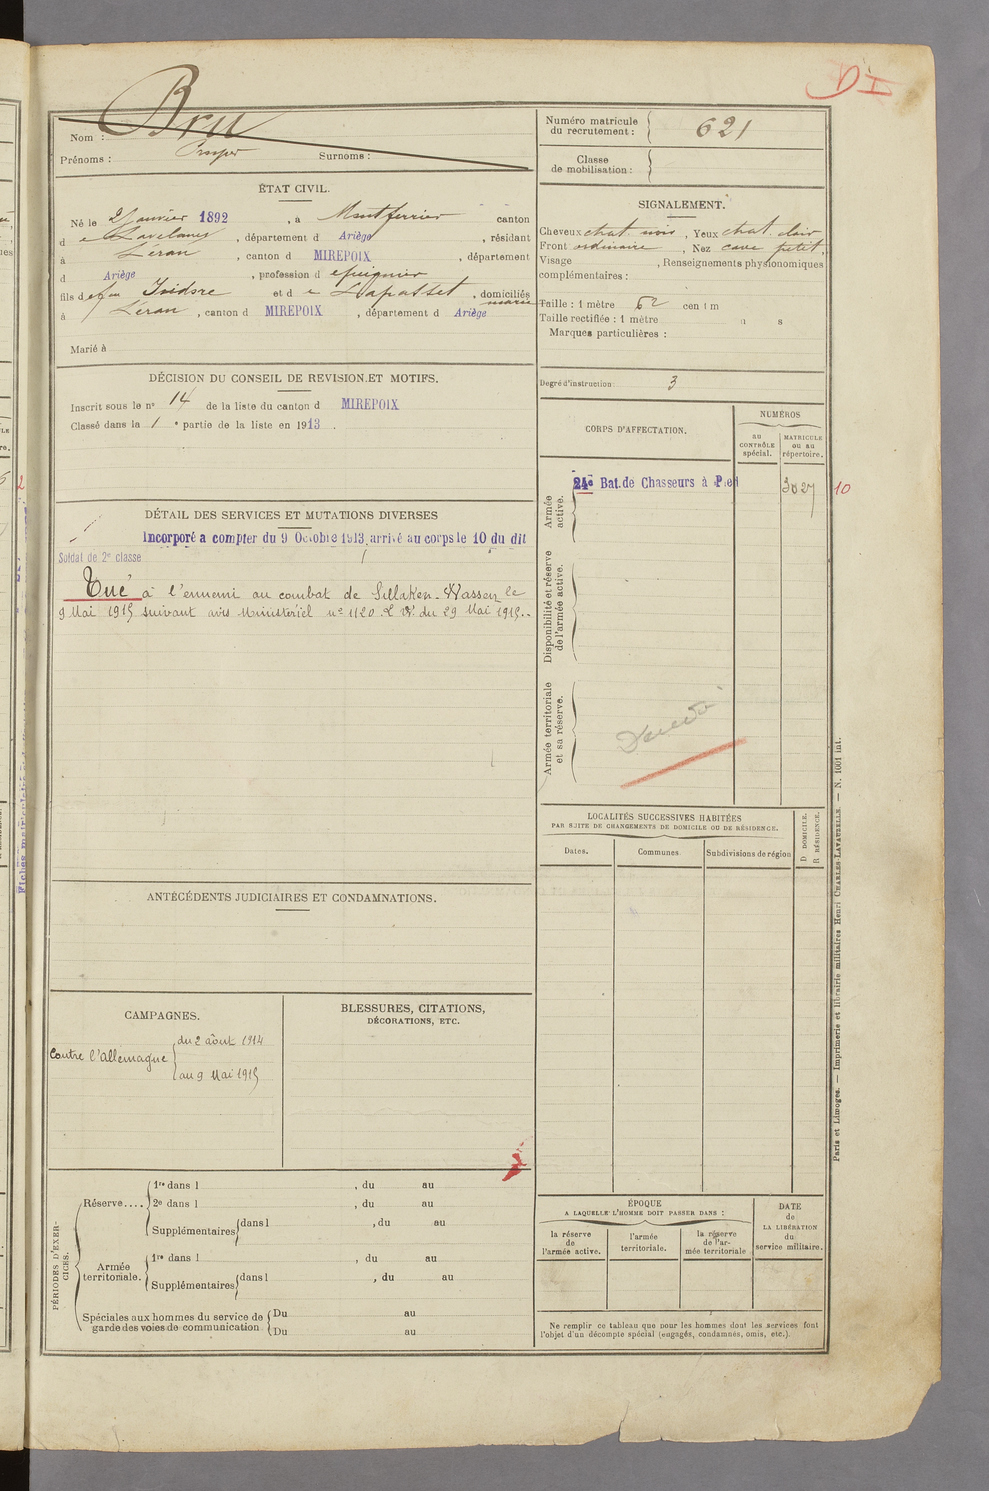 Bru
Nom :
Prénoms : Prosper Surnoms :
Numéro matricule
du recrutement : 621
Classe
de mobilisation :
ÉTAT CIVIL.
Né le 2 Janvier 1892, à Montferrier canton
d e Lavelanet, département d Ariège, résidant
à Léran, canton d MIREPOIX, département
d Ariège, profession d epicier
fils d e feu Isidore et d e Lapasset, domiciliés
marie
à Léran, canton d MIREPOIX, département d Ariège
Marié à
SIGNALEMENT.
Cheveux chat. noir, Yeux chat. clair
Front ordinaire, Nez cave petit,
Visage , Renseignements physionomiques
complémentaires :
Taille : 1 mètre 62 centim
Taille rectifiée : 1 mètre
Marques particulières :
Degré d'instruction : 3
DÉCISION DU CONSEIL DE REVISION ET MOTIFS.
Inscrit sous le nº 14 de la liste du canton d MIREPOIX
Classé dans la 1e partie de la liste en 1913.
CORPS D'AFFECTATION.
NUMÉROS
au
CONTRÔLE
spécial.
MATRICULE
ou au
répertoire.
Armée
active.
24e Bat. de Chasseurs à Pied
3027
10
Disponibilité et réserve
de l'armée active.
Armée territoriale
et sa réserve.
DÉTAIL DES SERVICES ET MUTATIONS DIVERSES
Incorporé a compter du 9 Octobre 1913 arrivé au corps le 10 du dit
Soldat de 2e classe
Tué à l'ennemi au combat de Sillaken-Wassen le
9 Mai 1915 suivant avis Ministériel nº 1120 du 29 Mai 1915.
LOCALITÉS SUCCESSIVES HABITÉES
PAR SUITE DE CHANGEMENTS DE DOMICILE OU DE RÉSIDENCE.
Dates.
Communes
Subdivisions de région
D DOMICILE.
R RÉSIDENCE.
ANTÉCÉDENTS JUDICIAIRES ET CONDAMNATIONS.
CAMPAGNES.
Contre l'allemagne
du 2 août 1914
au 9 Mai 1915
BLESSURES, CITATIONS,
DÉCORATIONS, ETC.
PÉRIODES D'EXER-
CICES.
Réserve....
1re dans l , du au
2e dans l , du au
Supplémentaires dans l , du au
Armée
territoriale.
1re dans l , du au
Supplémentaires dans l , du au
Spéciales aux hommes du service de
garde des voies de communication.
Du au
Du au
ÉPOQUE
A LAQUELLE L'HOMME DOIT PASSER DANS :
la réserve
de
l'armée active.
l'armée
territoriale.
la réserve
de l'ar-
mée territoriale
DATE
de
LA LIBÉRATION
du
service militaire.
Ne remplir ce tableau que pour les hommes dont les services font
l'objet d'un décompte spécial (engagés, condamnés, omis, etc.).
Paris et Limoges. — Imprimerie et librairie militaires Henri CHARLES-LAVAUZELLE. — N. 1001 int.